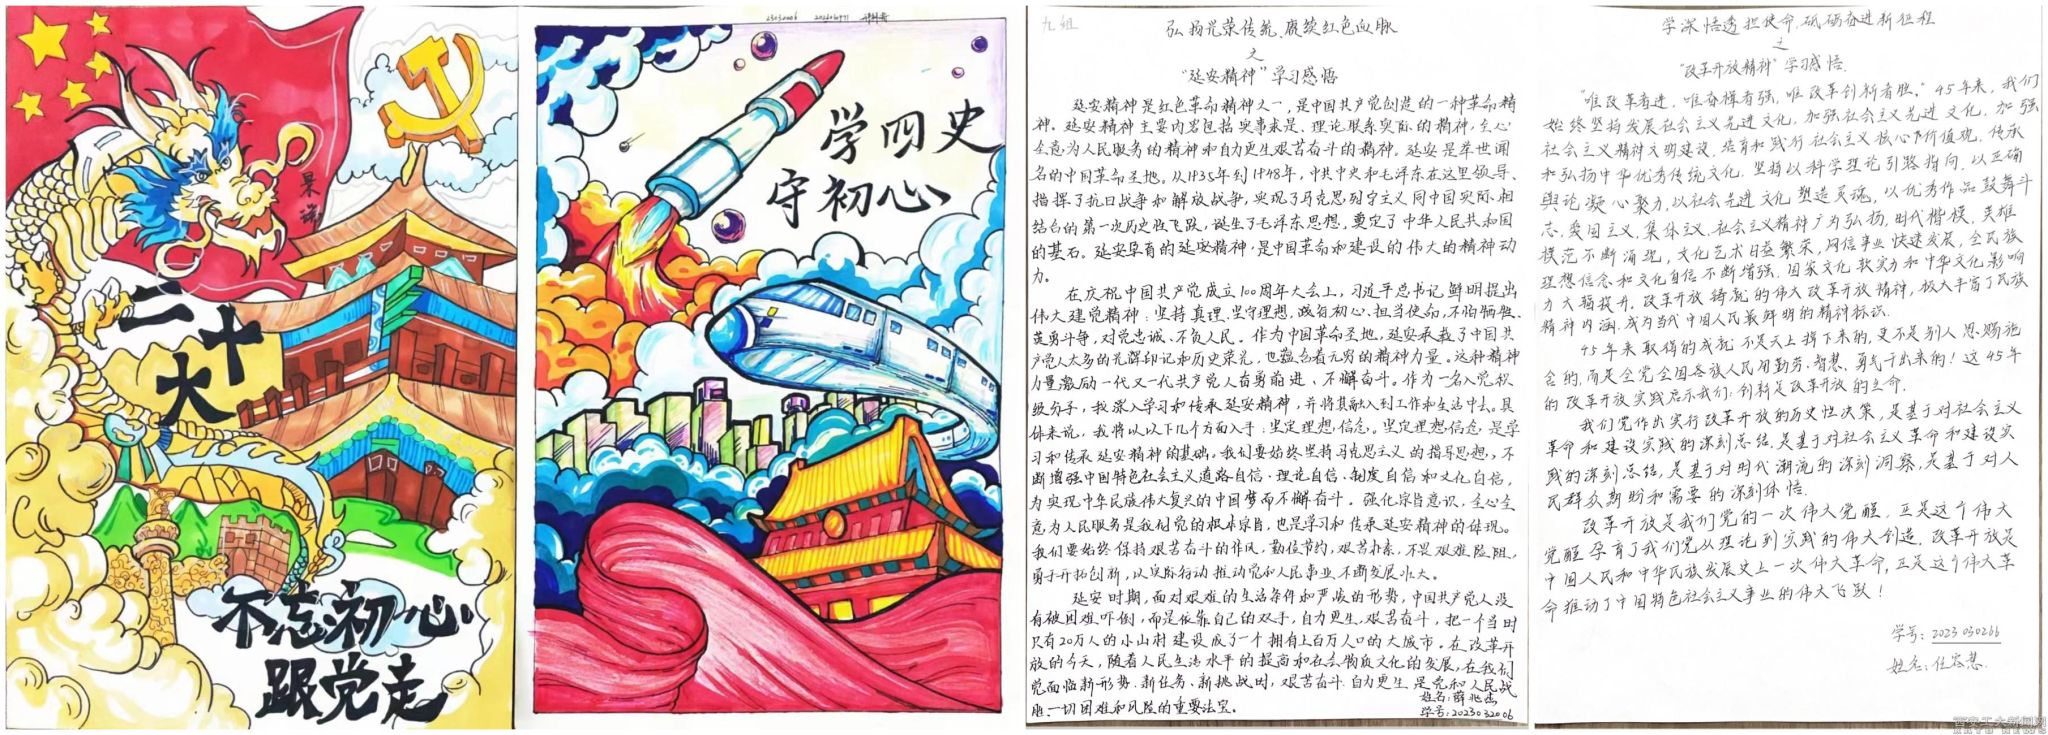 二十大
不忘初心
跟党走
学四史
守初心
九组
弘扬光荣传统、赓续红色血脉
之
“延安精神”学习感悟
延安精神是红色革命精神之一，是中国共产党创造的一种革命精
神。延安精神主要内容包括实事求是、理论联系实际的精神，全心
全意为人民服务的精神和自力更生艰苦奋斗的精神。延安是举世闻
名的中国革命圣地。从1935年到1948年，中共中央和毛泽东在这里领导、
指挥了抗日战争和解放战争，实现了马克思列宁主义同中国实际相
结合的第一次历史性飞跃，诞生了毛泽东思想，奠定了中华人民共和国
的基石。延安孕育的延安精神，是中国革命和建设的伟大的精神动
力。
在庆祝中国共产党成立100周年大会上，习近平总书记鲜明提出
伟大建党精神：坚持真理、坚守理想，践行初心、担当使命，不怕牺牲、
英勇斗争，对党忠诚、不负人民。作为中国革命圣地，延安承载了中国共
产党人太多的光辉印记和历史荣光，也蕴含着无穷的精神力量。这种精神
力量激励一代又一代共产党人奋勇前进、不懈奋斗。作为一名入党积
极分子，我深入学习和传承延安精神，并将其融入到工作和生活中去。具
体来说，我将从以下几个方面入手：坚定理想信念。坚定理想信念是学
习和传承延安精神的基础，我们要始终坚持马克思主义的指导思想，不
断增强中国特色社会主义道路自信、理论自信、制度自信和文化自信，
为实现中华民族伟大复兴的中国梦而不懈奋斗。强化宗旨意识，全心全
意为人民服务是我们党的根本宗旨，也是学习和传承延安精神的体现。
我们要始终保持艰苦奋斗的作风，勤俭节约，艰苦朴素，不畏艰难险阻，
勇于开拓创新，以实际行动推动党和人民事业不断发展壮大。
延安时期，面对艰难的生活条件和严峻的形势，中国共产党人没
有被困难吓倒，而是依靠自己的双手，自力更生，艰苦奋斗，把一个当时
只有20万人的小山村建设成了一个拥有上百万人口的大城市。在改革开
放的今天，随着人民生活水平的提高和社会物质文化的发展，在我们
党面临新形势、新任务、新挑战时，艰苦奋斗、自力更生是党和人民战
胜一切困难和风险的重要法宝。
姓名：薛兆杰
学号：2023032006
学深悟透担使命，砥砺奋进新征程
之
“改革开放精神”学习感悟
“唯改革者进，唯奋楫者强，唯改革创新者胜。”45年来，我们
始终坚持发展社会主义先进文化，加强社会主义先进文化，加强
社会主义精神文明建设，培育和践行社会主义核心价值观，传承
和弘扬中华优秀传统文化，坚持以科学理论引路指向，以正确
舆论凝心聚力，以社会先进文化塑造灵魂，以优秀作品鼓舞斗
志，爱国主义、集体主义、社会主义精神广为弘扬，时代楷模、英雄
模范不断涌现，文化艺术日益繁荣，网信事业快速发展，全民族
理想信念和文化自信不断增强，国家文化软实力和中华文化影响
力大幅提升。改革开放铸就的伟大改革开放精神，极大丰富了民族
精神内涵，成为当代中国人民最鲜明的精神标识。
45年来取得的成就不是天上掉下来的，更不是别人恩赐施
舍的，而是全党全国各族人民用勤劳、智慧、勇气干出来的！这45年
的改革开放实践启示我们：创新是改革开放的生命。
我们党作出实行改革开放的历史性决策，是基于对社会主义
革命和建设实践的深刻总结，是基于对社会主义革命和建设实
践的深刻总结，是基于对时代潮流的深刻洞察，是基于对人
民群众期盼和需要的深刻体悟。
改革开放是我们党的一次伟大觉醒，正是这个伟大
觉醒孕育了我们党从理论到实践的伟大创造。改革开放是
中国人民和中华民族发展史上一次伟大革命，正是这个伟大革
命推动了中国特色社会主义事业的伟大飞跃！
学号：2023030266